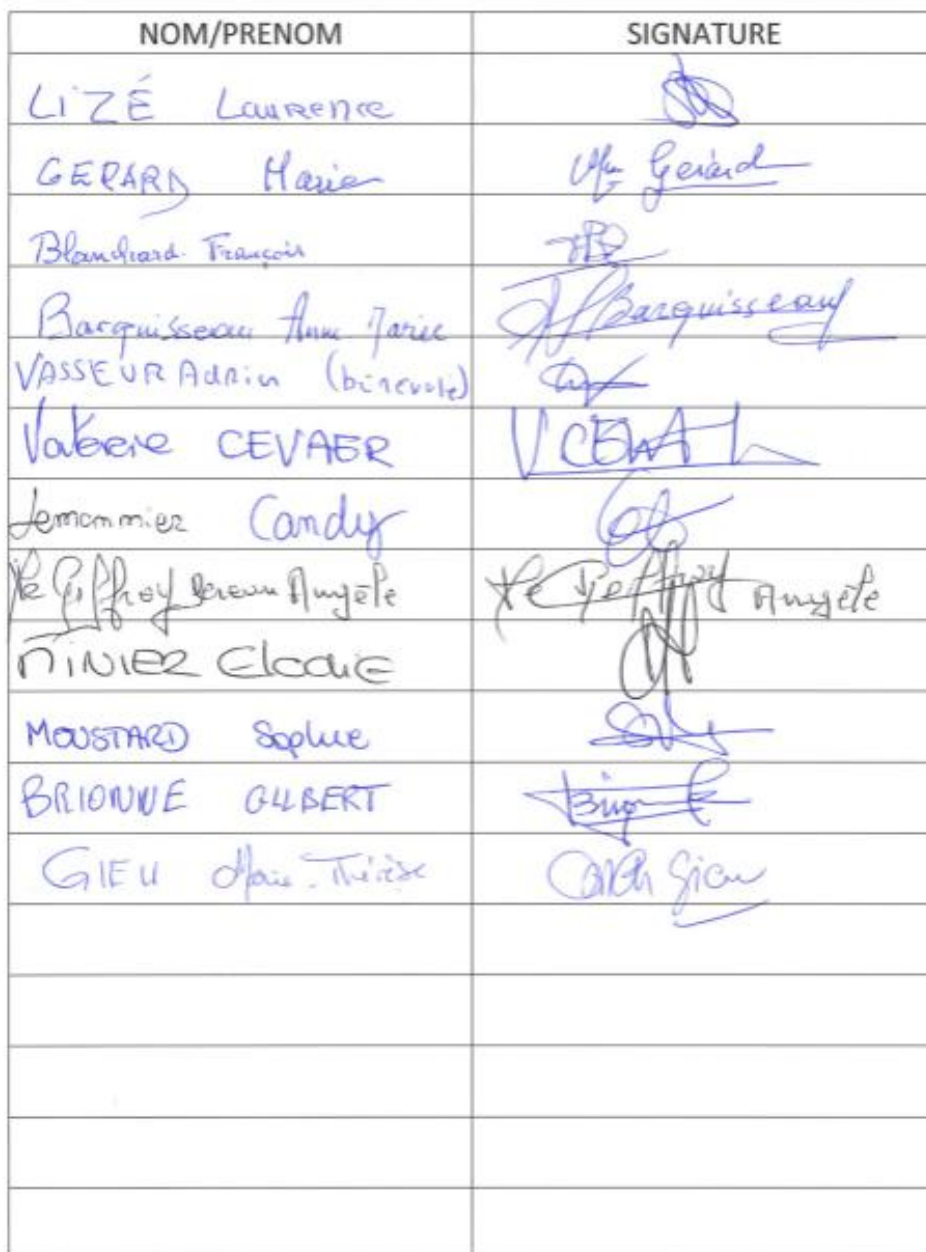 NOM/PRENOM SIGNATURE
LIZÉ Laurence
GERARD Marie Gerard
Blanchard François
Barquisseau Anne Marie Barquisseau
VASSEUR Adrien (bénévole)
Valérie CEVAER V CEVA
Lemonnier Candy
Le Geffroy Angèle Le Geffroy Angèle
MINIER Elodie
MOUSTARD Sophie
BRIONNE GILBERT
GIEU Marie-Thérèse